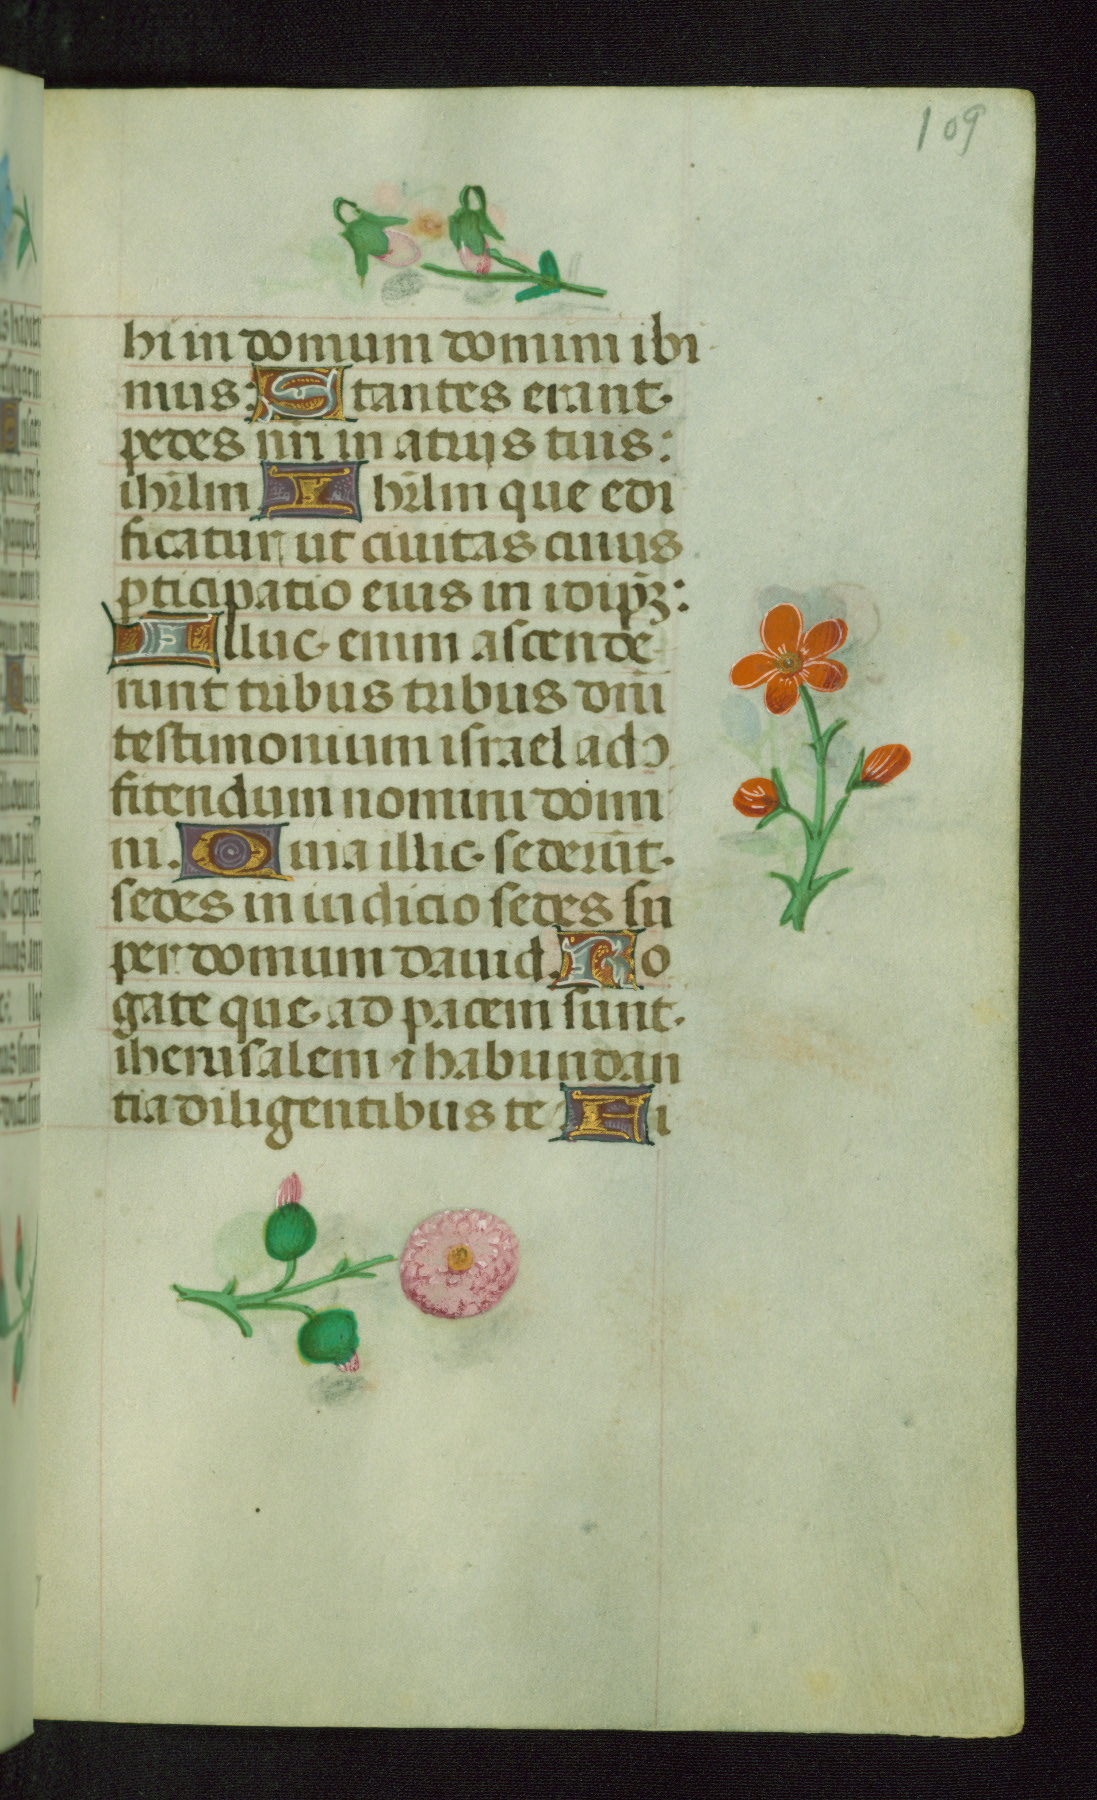 109
hi in domum domini ibi
mus: Stantes erant
pedes nri in atriis tuis:
ihrlm Ihrlm que edi
ficatur ut civitas cuius
pticipatio eius in idipz:
Illuc enim ascende
runt tribus tribus dni
testimonium israel ad ↄ
fitendum nomini domi
ni. Quia illic sederūt
sedes in iudicio sedes su
per domum david. Ro
gate que ad pacem sunt
iherusalem ⁊ habundan
tia diligentibus te Fi